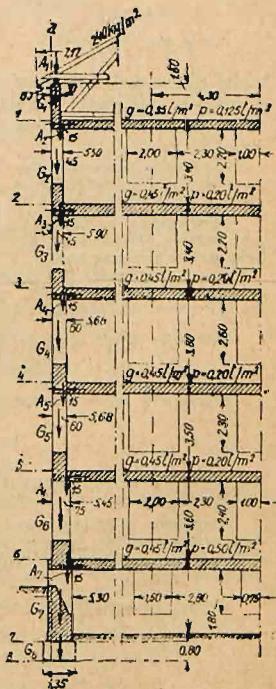 240 kg/m²
2,12
A₁
1,60
4,30
1
g=0,35 t/m² p=0,125 t/m²
15
45
5,90
2,00
2,30
1,00
3,40
2,20
2
g=0,45 t/m² p=0,20 t/m²
A₃
15
45
5,90
G₃
3,40
2,20
3
g=0,45 t/m² p=0,20 t/m²
A₄
15
60
5,68
G₄
3,60
2,60
4
g=0,45 t/m² p=0,20 t/m²
A₅
15
60
5,68
G₅
3,50
2,30
5
g=0,45 t/m² p=0,20 t/m²
75
5,45
G₆
2,00
2,30
1,00
3,60
2,40
6
g=0,45 t/m² p=0,50 t/m²
A₇
15
5,30
1,60
2,80
G₇
1,80
7
0,80
8
1,35